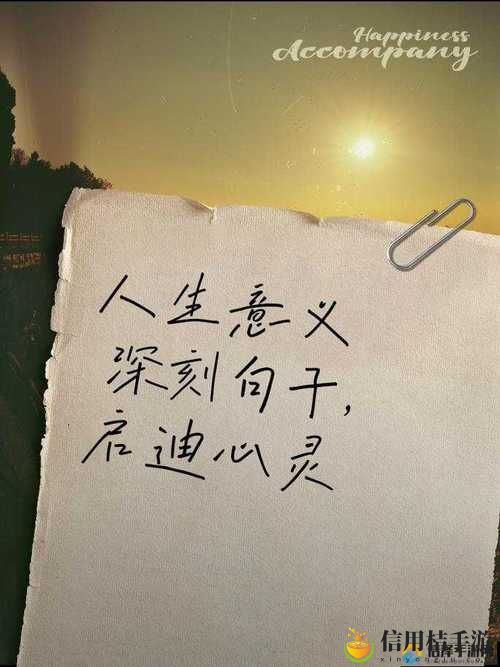 Happiness
Accompany
人生意义
深刻句子，
启迪心灵
信用桔手游